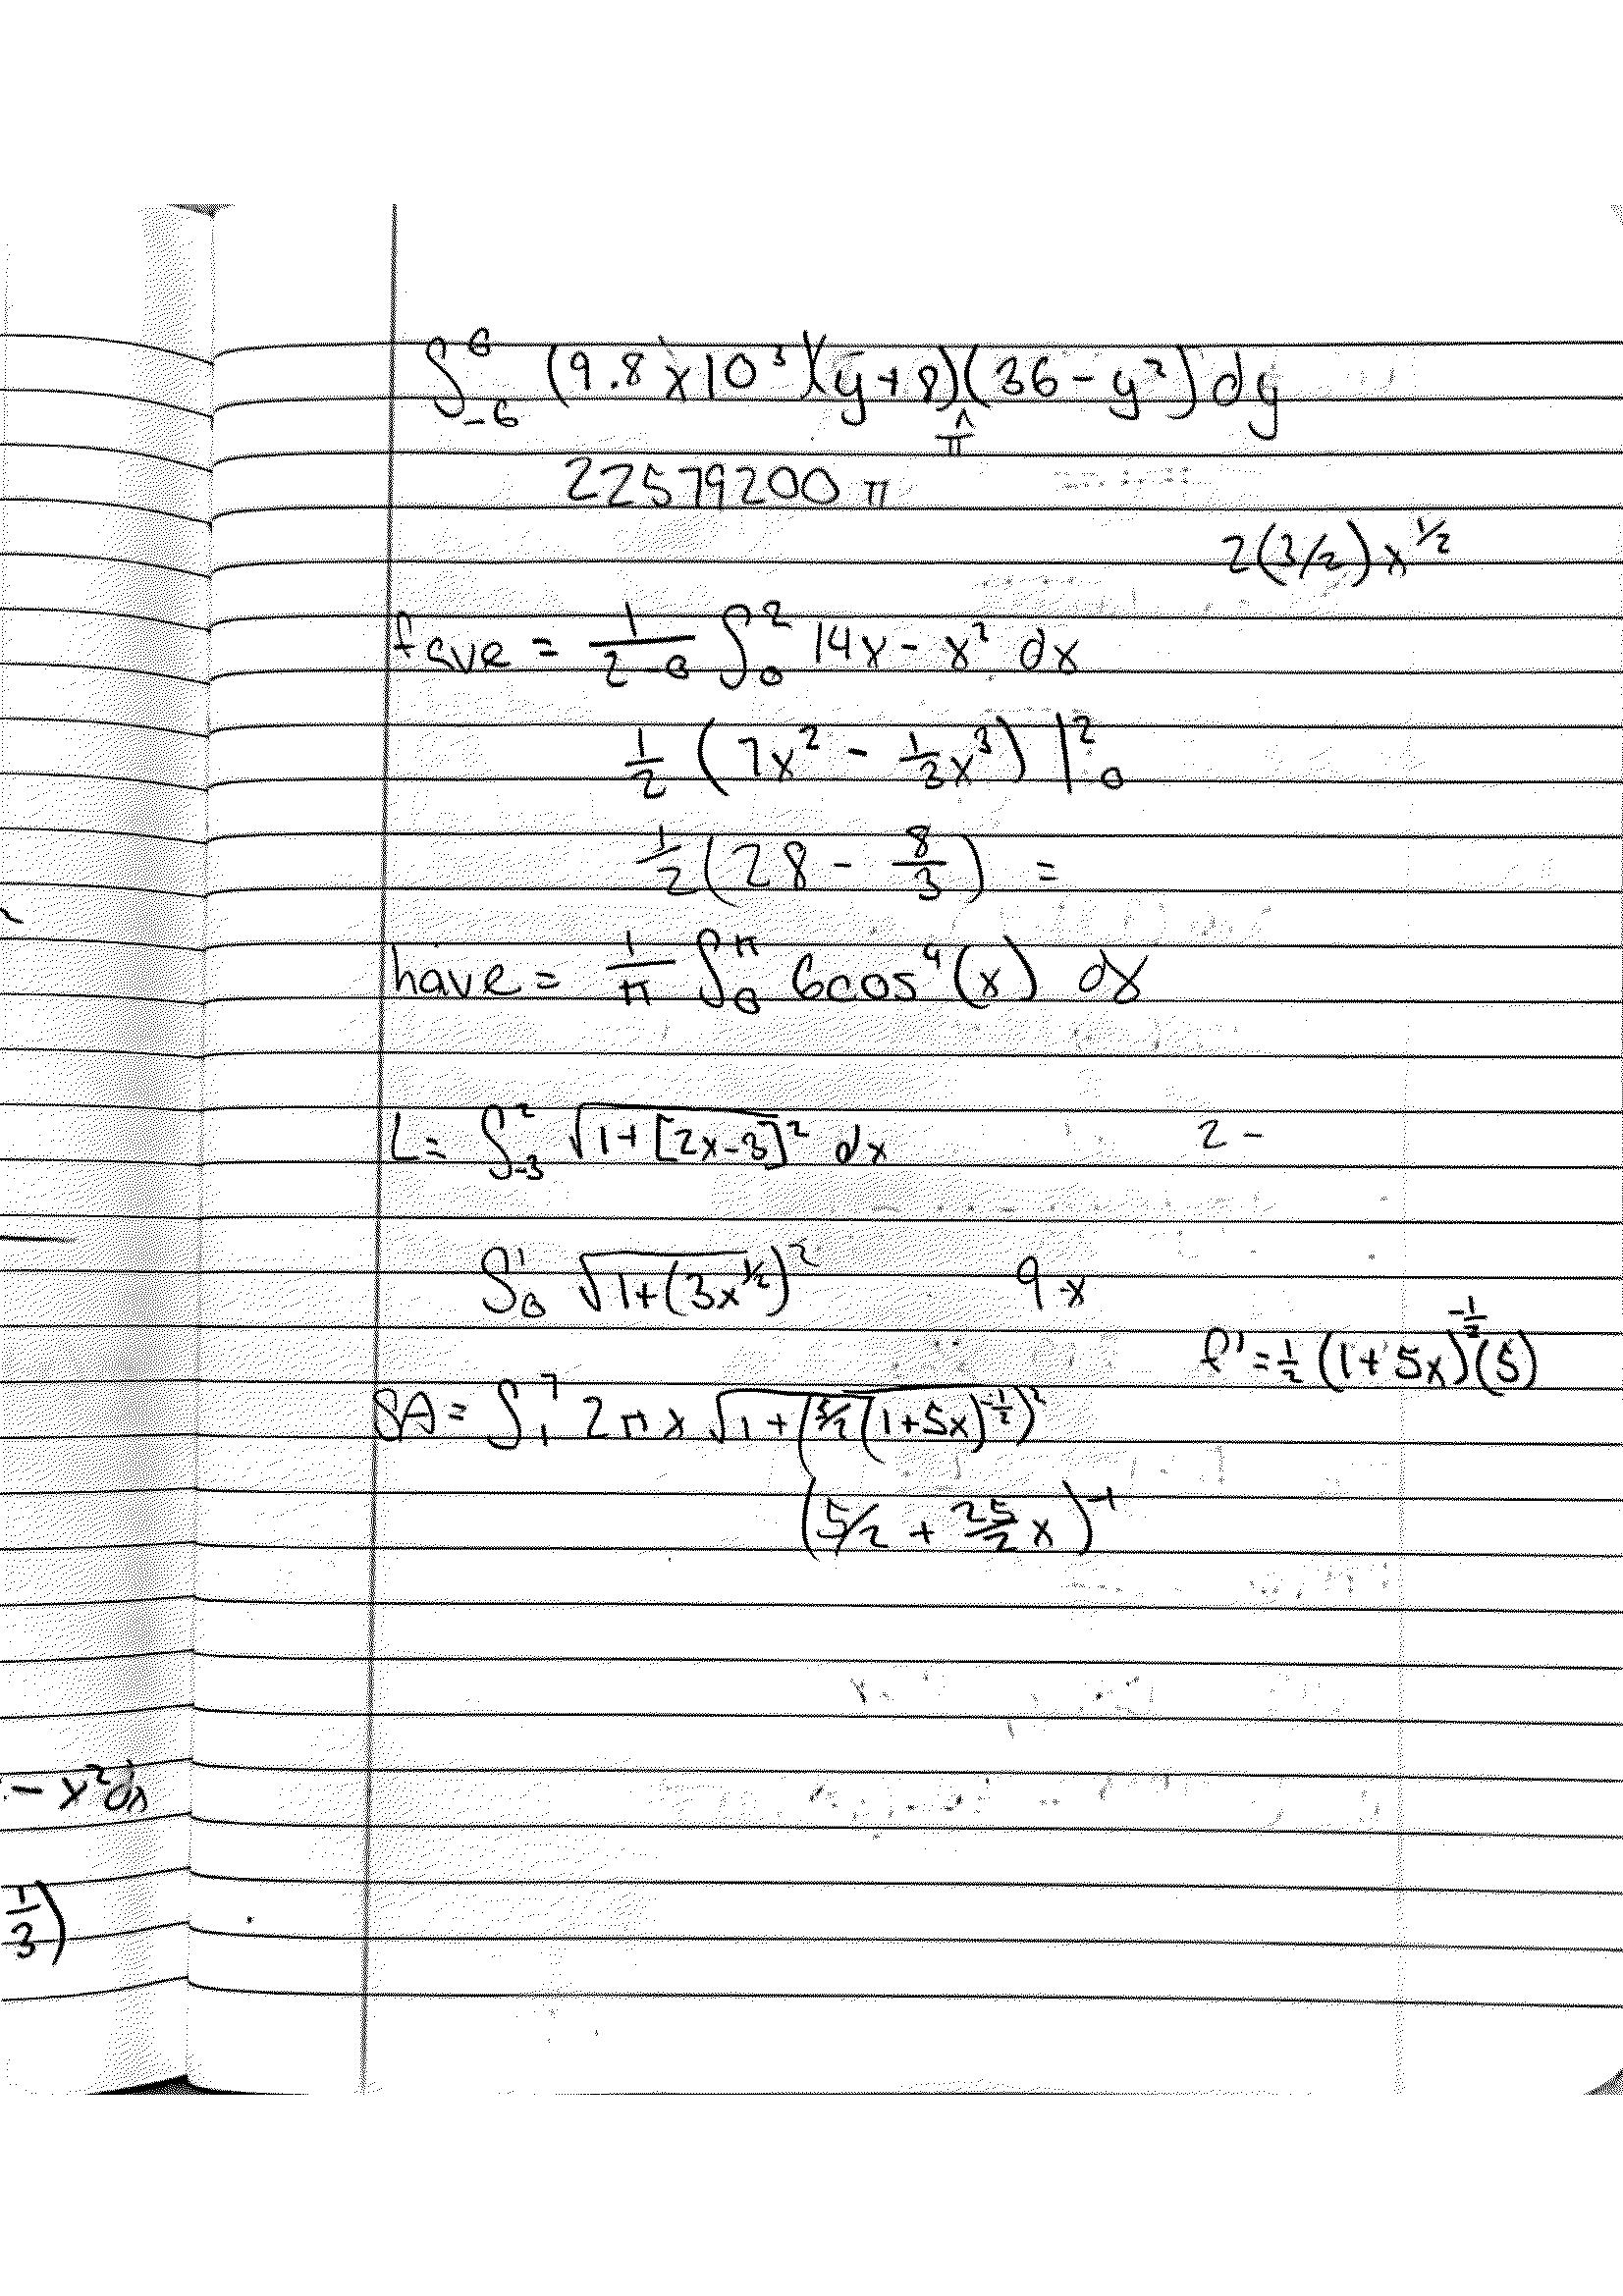 ∫_{-6}^{6} (9.8 x 10^3)(y+8)π(36 - y^2) dy
22579200 π
2(3/2) x^{1/2}
fave = 1/(2-0) ∫_0^2 14x - x^2 dx
1/2 (7x^2 - 1/3 x^3) |_0^2
1/2 (28 - 8/3) =
have = 1/π ∫_0^π 6cos^4(x) dx
L = ∫_{-3}^2 √(1+[2x-3]^2) dx
2 -
∫_0^1 √(1+(3x^{1/2})^2)
9x
f' = 1/2 (1+5x)^{-1/2} (5)
SA = ∫_1^7 2πx √(1+(5/2(1+5x)^{-1/2})^2)
(5/2 + 25/2 x)^{-1}
- x^2 dx
1/3)